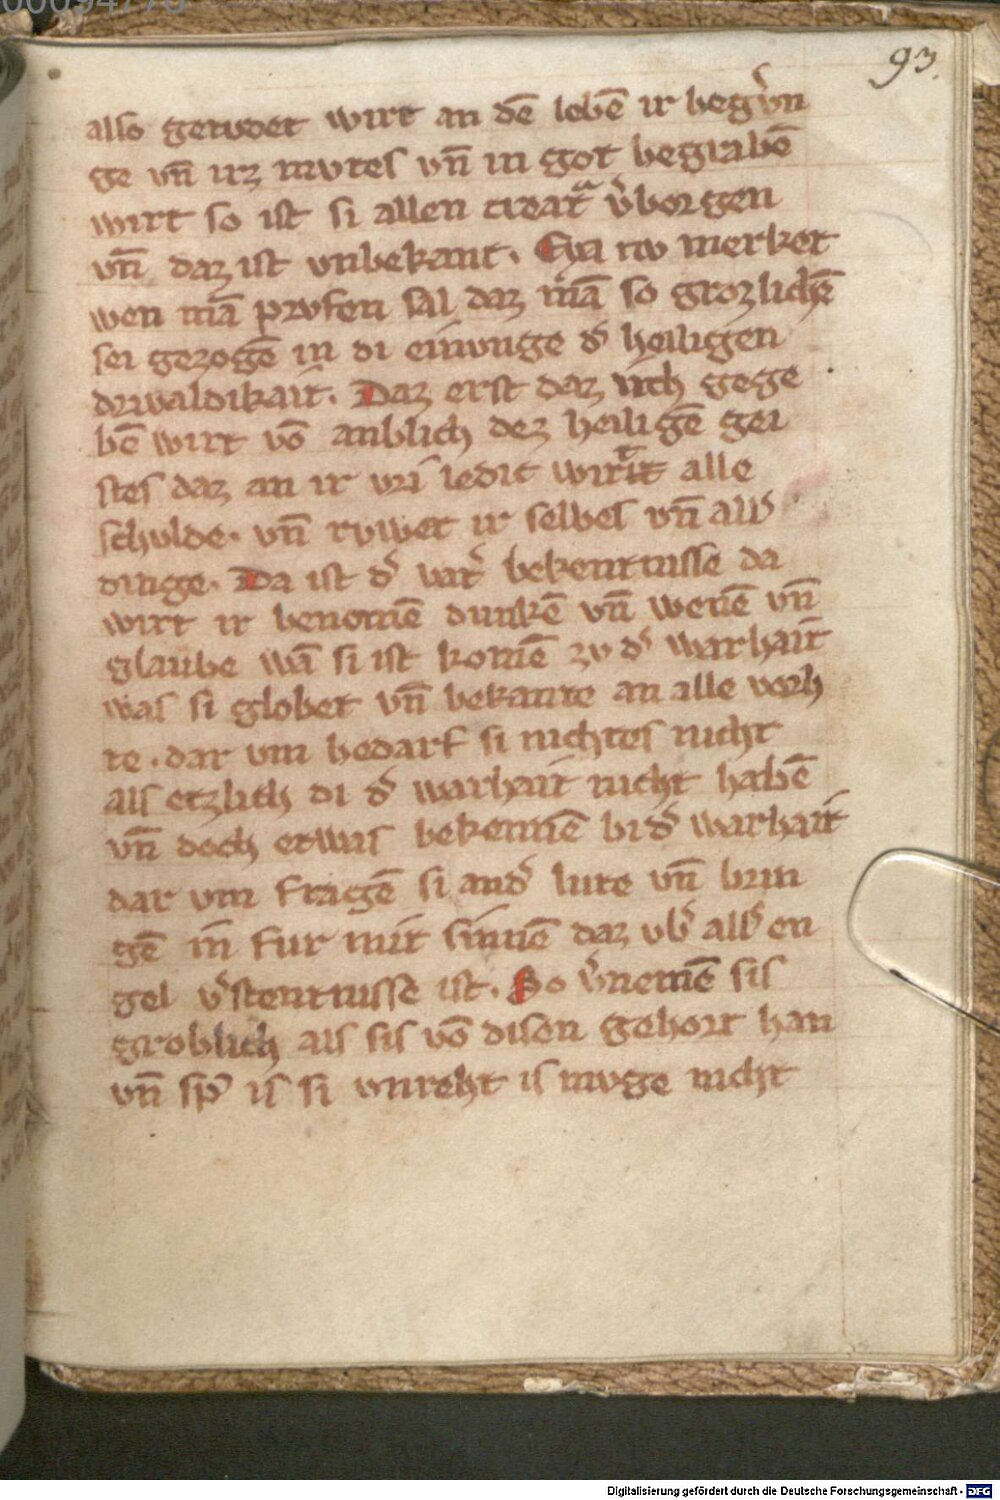 93.
also getodet wirt an dē lebē ir begrūn
ge vn̄ irz mvtes vn̄ in got begrabē
wirt so ist si allen creatᵃ v̓borgen
vn̄ daz ist vnbekant. Eya nv merket
wen mā prvfen sal daz mā so grozlichē
sei gezogē in di einvnge d̓ heiligen
drivaldikait. Daz erst daz sich gege
bē wirt vō anblich dez heiligē gei
stes daz an ir vri ledic wirt alle
schvlde. vn̄ rvwet ir selbes vn̄ all̓
dinge. Da ist d̓ vat̓ bekentnisse da
wirt ir benomē dunkē vn̄ wenē vn̄
glaube wā si ist komē zv d̓ warhait
was si globet vn̄ bekante an alle vorh
te. dar vm bedarf si nichtes nicht
als etzlich di d̓ warhait nicht habē
vn̄ doch etwas bekennē bi d̓ warhait
dar vm fragē si and̓ lute vn̄ brin
gē in fur mit sinnē daz vb̓ all̓ en
gel v̓stentnisse ist. So v̓nemē sis
groblich als sis vō disen gehort han
vn̄ sp̄ is si vnreht is mvge nicht
Digitalisierung gefördert durch die Deutsche Forschungsgemeinschaft - DFG